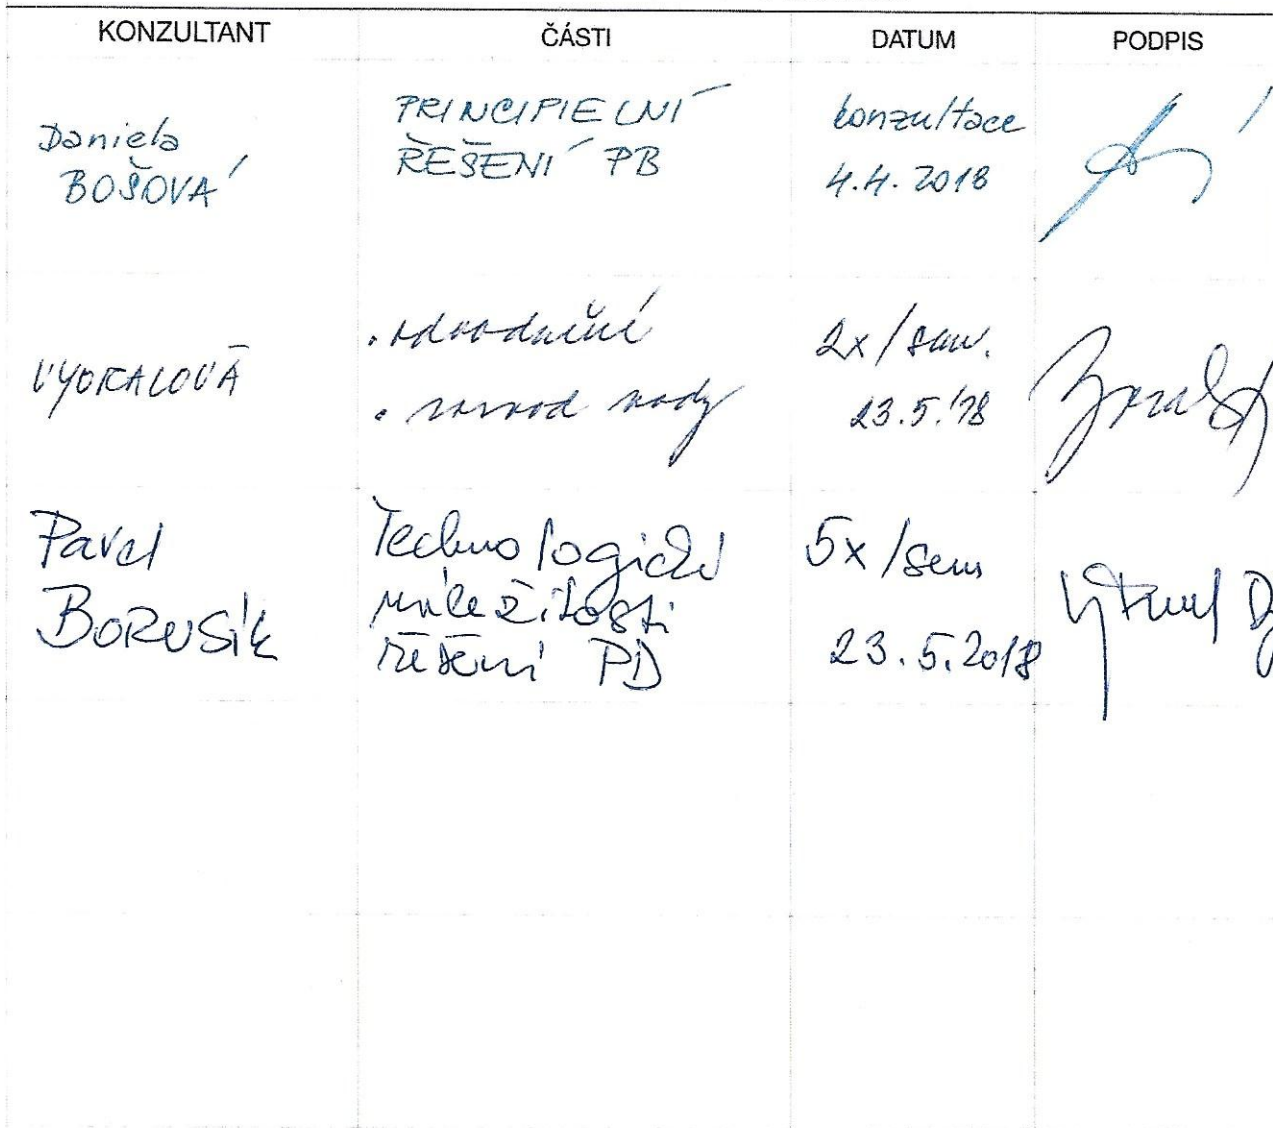 KONZULTANT ČÁSTI DATUM PODPIS
Daniela
BOŠOVÁ
PRINCIPIELNÍ
ŘEŠENÍ PB
konzultace
4.4. 2018
VYORALOVÁ
• odvodnění
• rozvod vody
2x/sem.
23.5.'18
Pavel
BORUSÍK
Technologické
náležitosti
řešení PD
5x/sem
23.5.2018